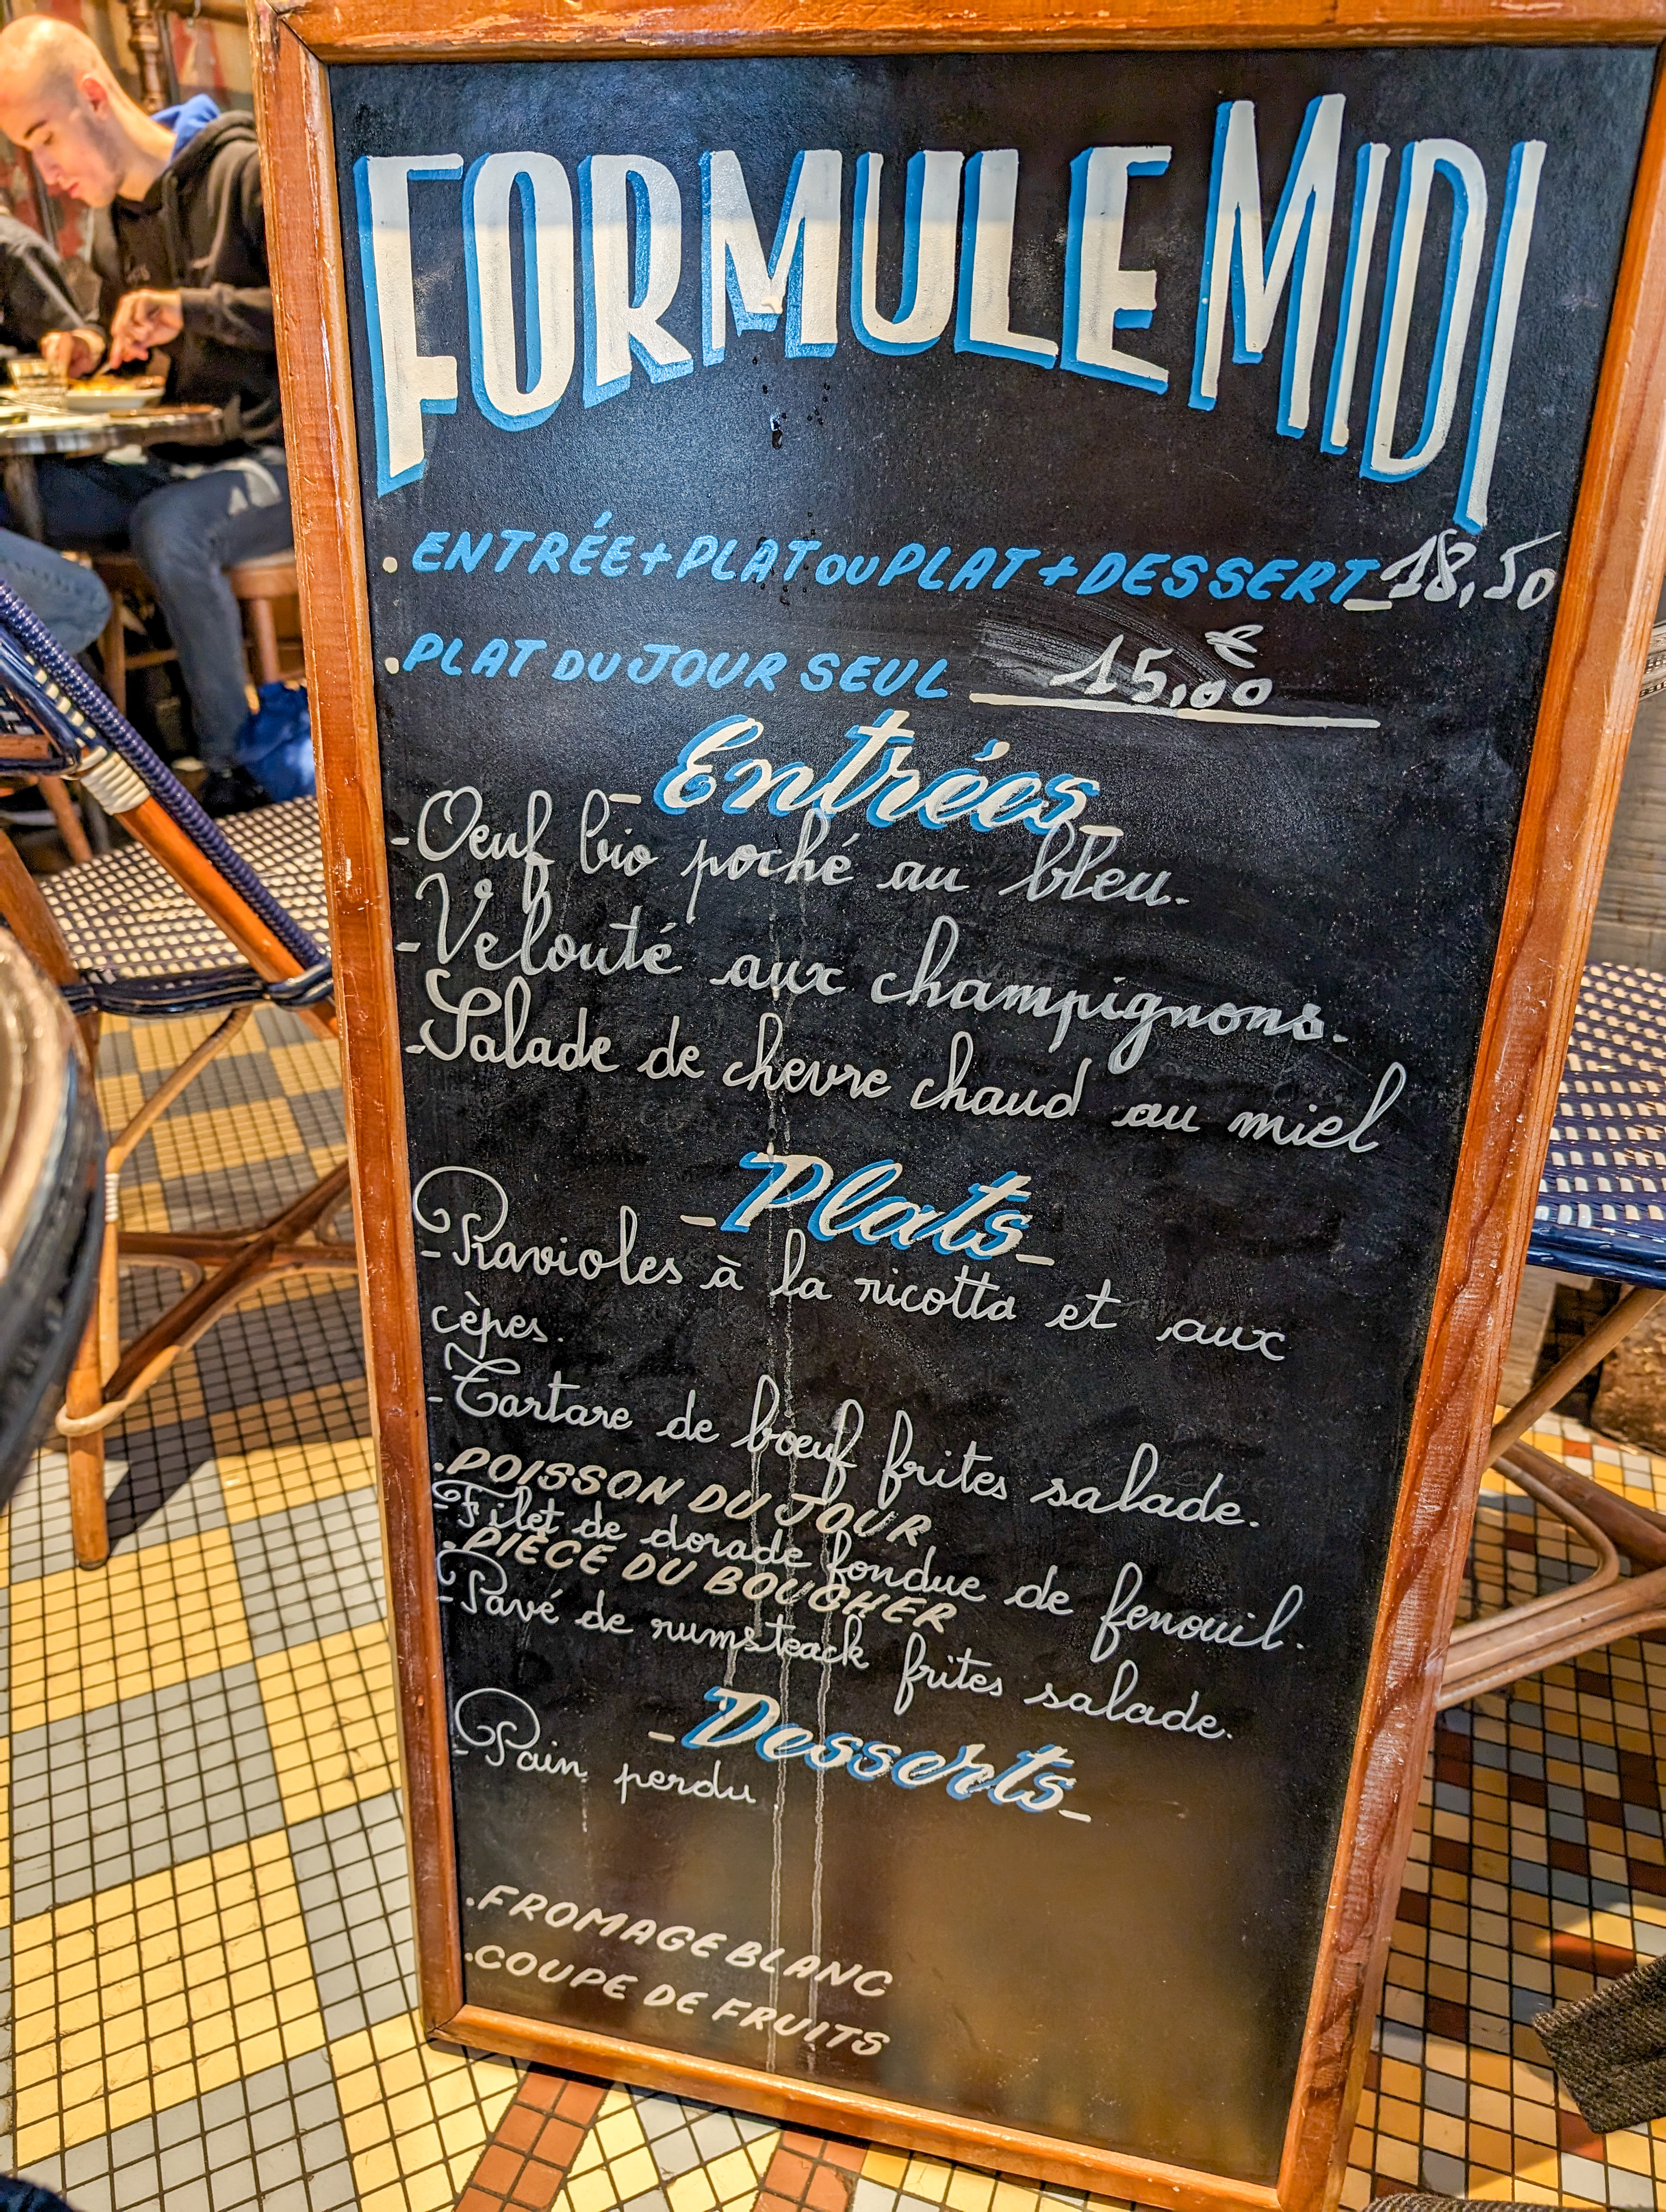 FORMULE MIDI
. ENTRÉE + PLAT OU PLAT + DESSERT_18,50
. PLAT DU JOUR SEUL 15,00 €
- Entrées -
- Oeuf bio poché au bleu.
- Velouté aux champignons.
- Salade de chevre chaud au miel
- Plats -
- Ravioles à la ricotta et aux
cèpes.
- Tartare de boeuf frites salade.
. POISSON DU JOUR
- Filet de dorade fondue de fenouil.
. PIÈCE DU BOUCHER
- Pavé de rumsteack frites salade.
- Desserts -
- Pain perdu
. FROMAGE BLANC
. COUPE DE FRUITS